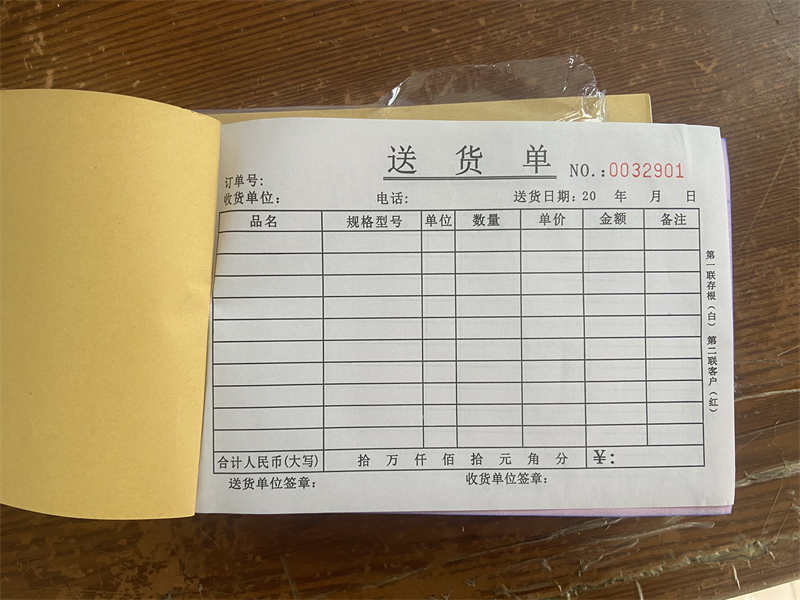 送货单 NO.:0032901
订单号:
收货单位: 电话: 送货日期: 20 年 月 日
品名 规格型号 单位 数量 单价 金额 备注
合计人民币(大写) 拾 万 仟 佰 拾 元 角 分 ¥:
送货单位签章: 收货单位签章:
第一联存根(白) 第二联客户(红)